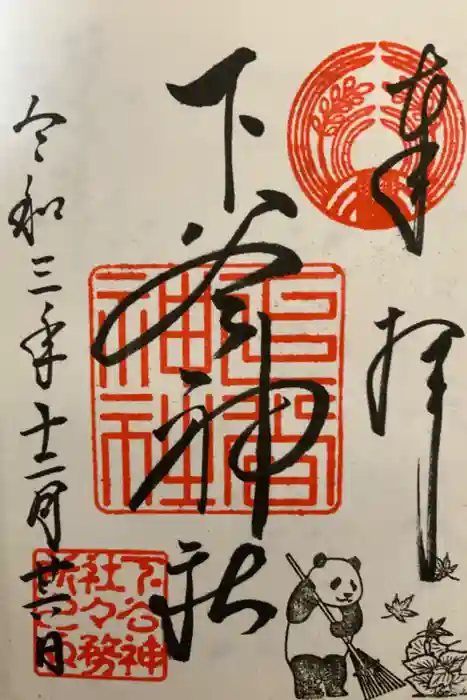 奉拝
下谷神社
令和三年十二月廿六日
下谷神社
下谷神社々務所之印